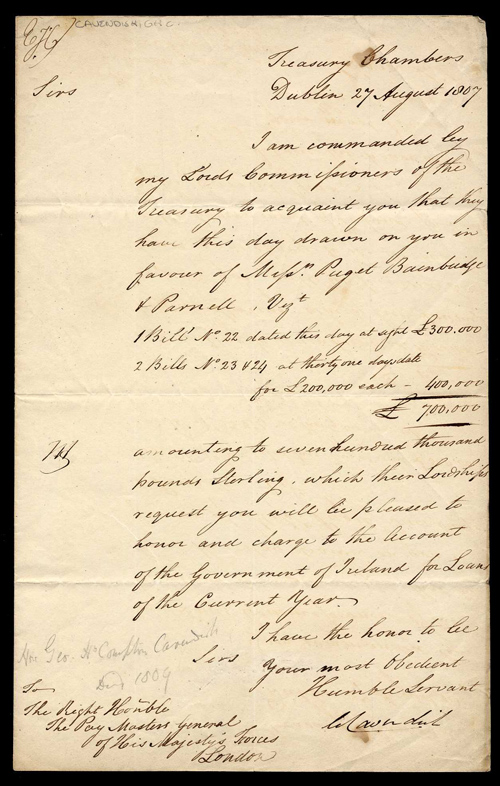 CAVENDISH, G.H.C.
Treasury Chambers
Dublin 27 August 1807
Sirs
I am commanded by
my Lords Commissioners of the
Treasury to acquaint you that they
have this day drawn on you in
favour of Messrs Puget Bainbridge
& Parnell, Vizt
1 Bill No. 22 dated this day at sight £300.000
2 Bills No. 23 & 24 at thirty one days date
for £200,000 each - 400,000
£ 700,000
amounting to seven hundred thousand
pounds Sterling. which their Lordships
request you will be pleased to
honor and charge to the Account
of the Government of Ireland for Loans
of the Current Year.
I have the honor to be
Sirs
Your most Obedient
Humble Servant
G Cavendish
Hon Geo. H. Compton Cavendish
Died 1809
To
The Right Honble
The Pay Masters General
of His Majesty's Forces
London